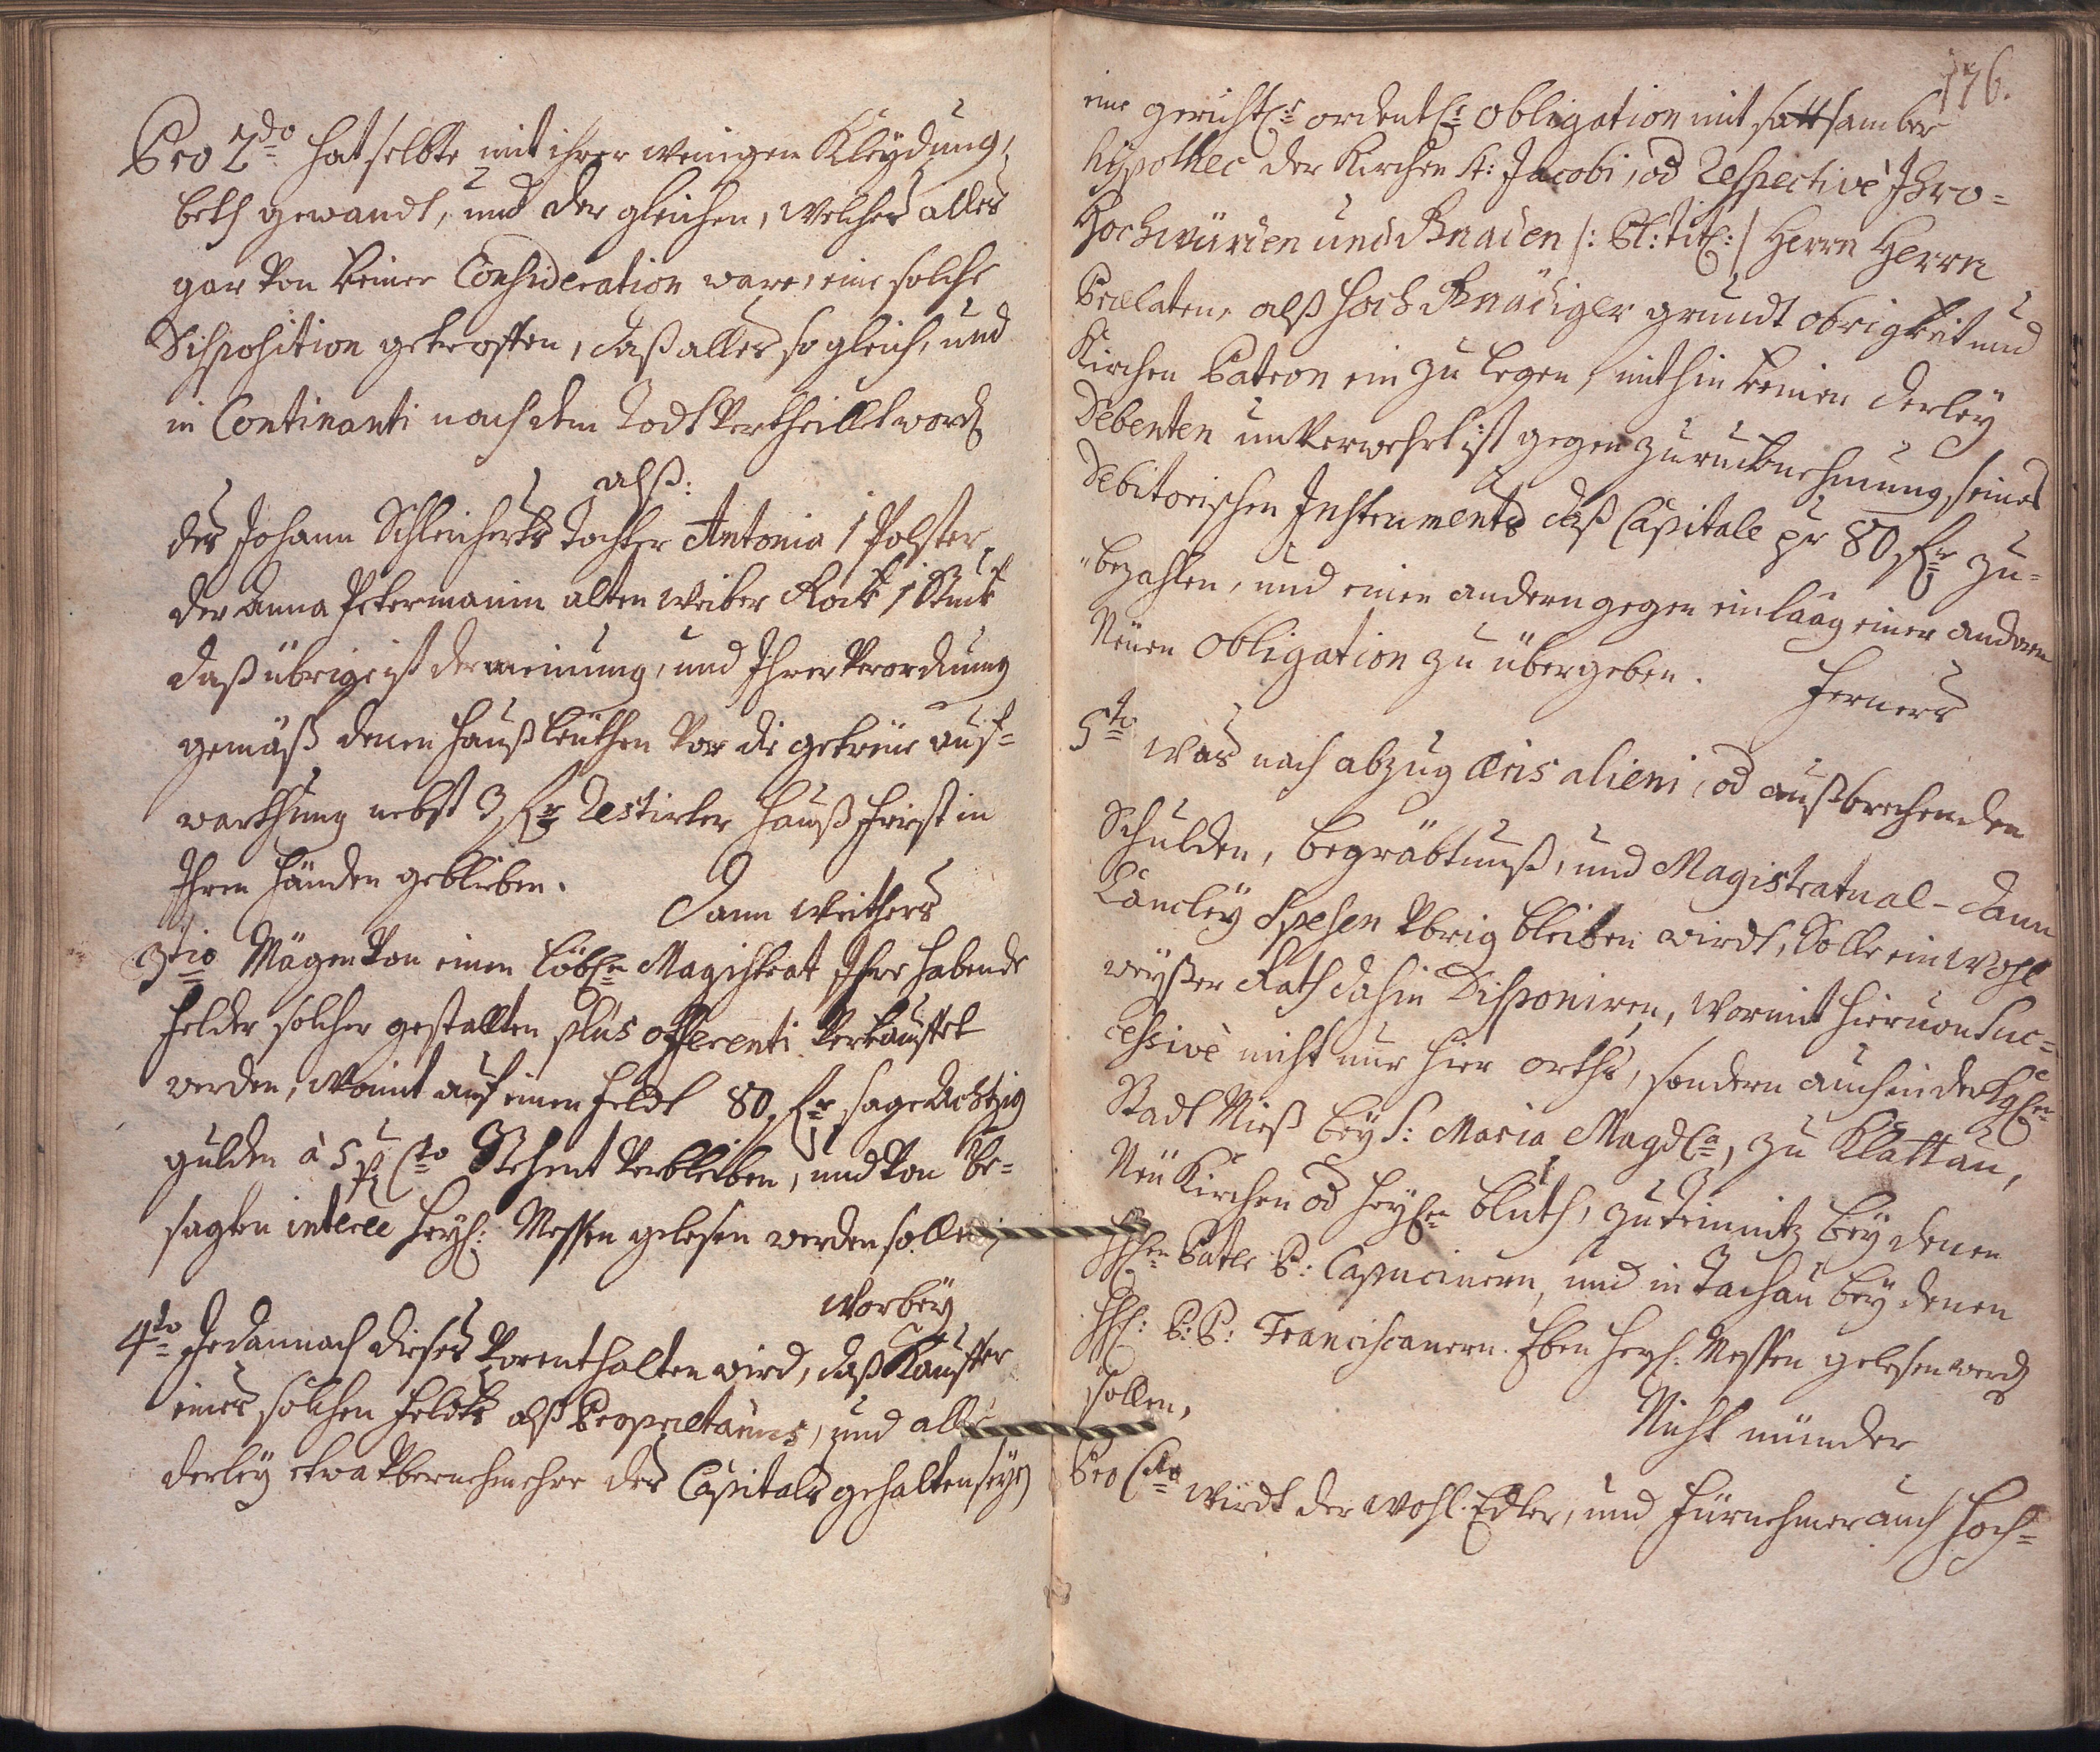 Pro 2do hat selbte mit ihrer wenigen Kleydung,
beth gewandt, und der gleichen, welches alles
gar von keiner Consideration ware, eine solche
Disposition getroffen, daß alles so gleich, und
in Continanti nach dem Todt vertheillt word
alß:
des Johann Schleicherts Tochter Antonia 1 Polster,
der Anna Petermanin alten weiber Rock 1 Stuck
daß übrige ist der meinung, und Ihrer verordnung
gemäß denen hauß leuthen vor die getreue auf=
warthung nebst 3 fr Restirter hauß Friest in
Ihren händen geblieben.
Dann weithers
3tio Mögen von einen löbln Magistrat Ihre habende
felder solcher gestallten plus offerenti verkauffet
werden, womit auf einen feldt 80 fr sage Achtzig
gulden à 5 p Cto Stehent verbleiben, und von be=
sagten interee heyl: Messen gelesen werden sollen,
Worbey
4to Jedannoch dieses vorenthalten wird, daß Kauffer
eines solchen feldts alß Proprietarius, und alle
derley etwa übernehmehre des Capitals gehalten seye
176.
eine gerichtlr ordentlr obligation mit sattsamber
hipothec der Kirchen St: Jacobi, od Respectivè Ihro=
Hochwürden und Gnaden /: Pl: titl: / Herrn Herrn
Prælaten, alß hoch Gnädiger grundt obrigkeit und
Kirchen Patron ein zu legen, mithin keinen derley
Debenten unverwehrt ist gegen zuruckne hmung, seines
Debitorischen Instruments daß Capitale pr 80 fr zu=
bezahlen, und einen andern gegen einlaag einer anderen
Neuen obligation zu übergeben.
Ferners
5to was nach abzug æris alieni, od außbrechenden
Schulden, begräbtnuß, und Magistratual- dann
Cancley Spesen übrig bleiben wirdt, Solle ein wohl
weyßer Rath dahin Disponiren, wormit hieruon Suc=
cessivè nicht nur hier orths, sondern auch in der Kgln
Stadt Mieß bey S: Maria Magdla, zu Klattau,
Neu Kirchen od heyln bluth, zu Teinitz bey denen
HHen Patr P: Capucinern, und in Tachau bey denen
HH: P: P: Franciscanern. Eben heyl: Messen gelesen werd
sollen,
Nicht münder
Pro 6to wirdt der wohl Edler, und fürnehmer auch hoch=